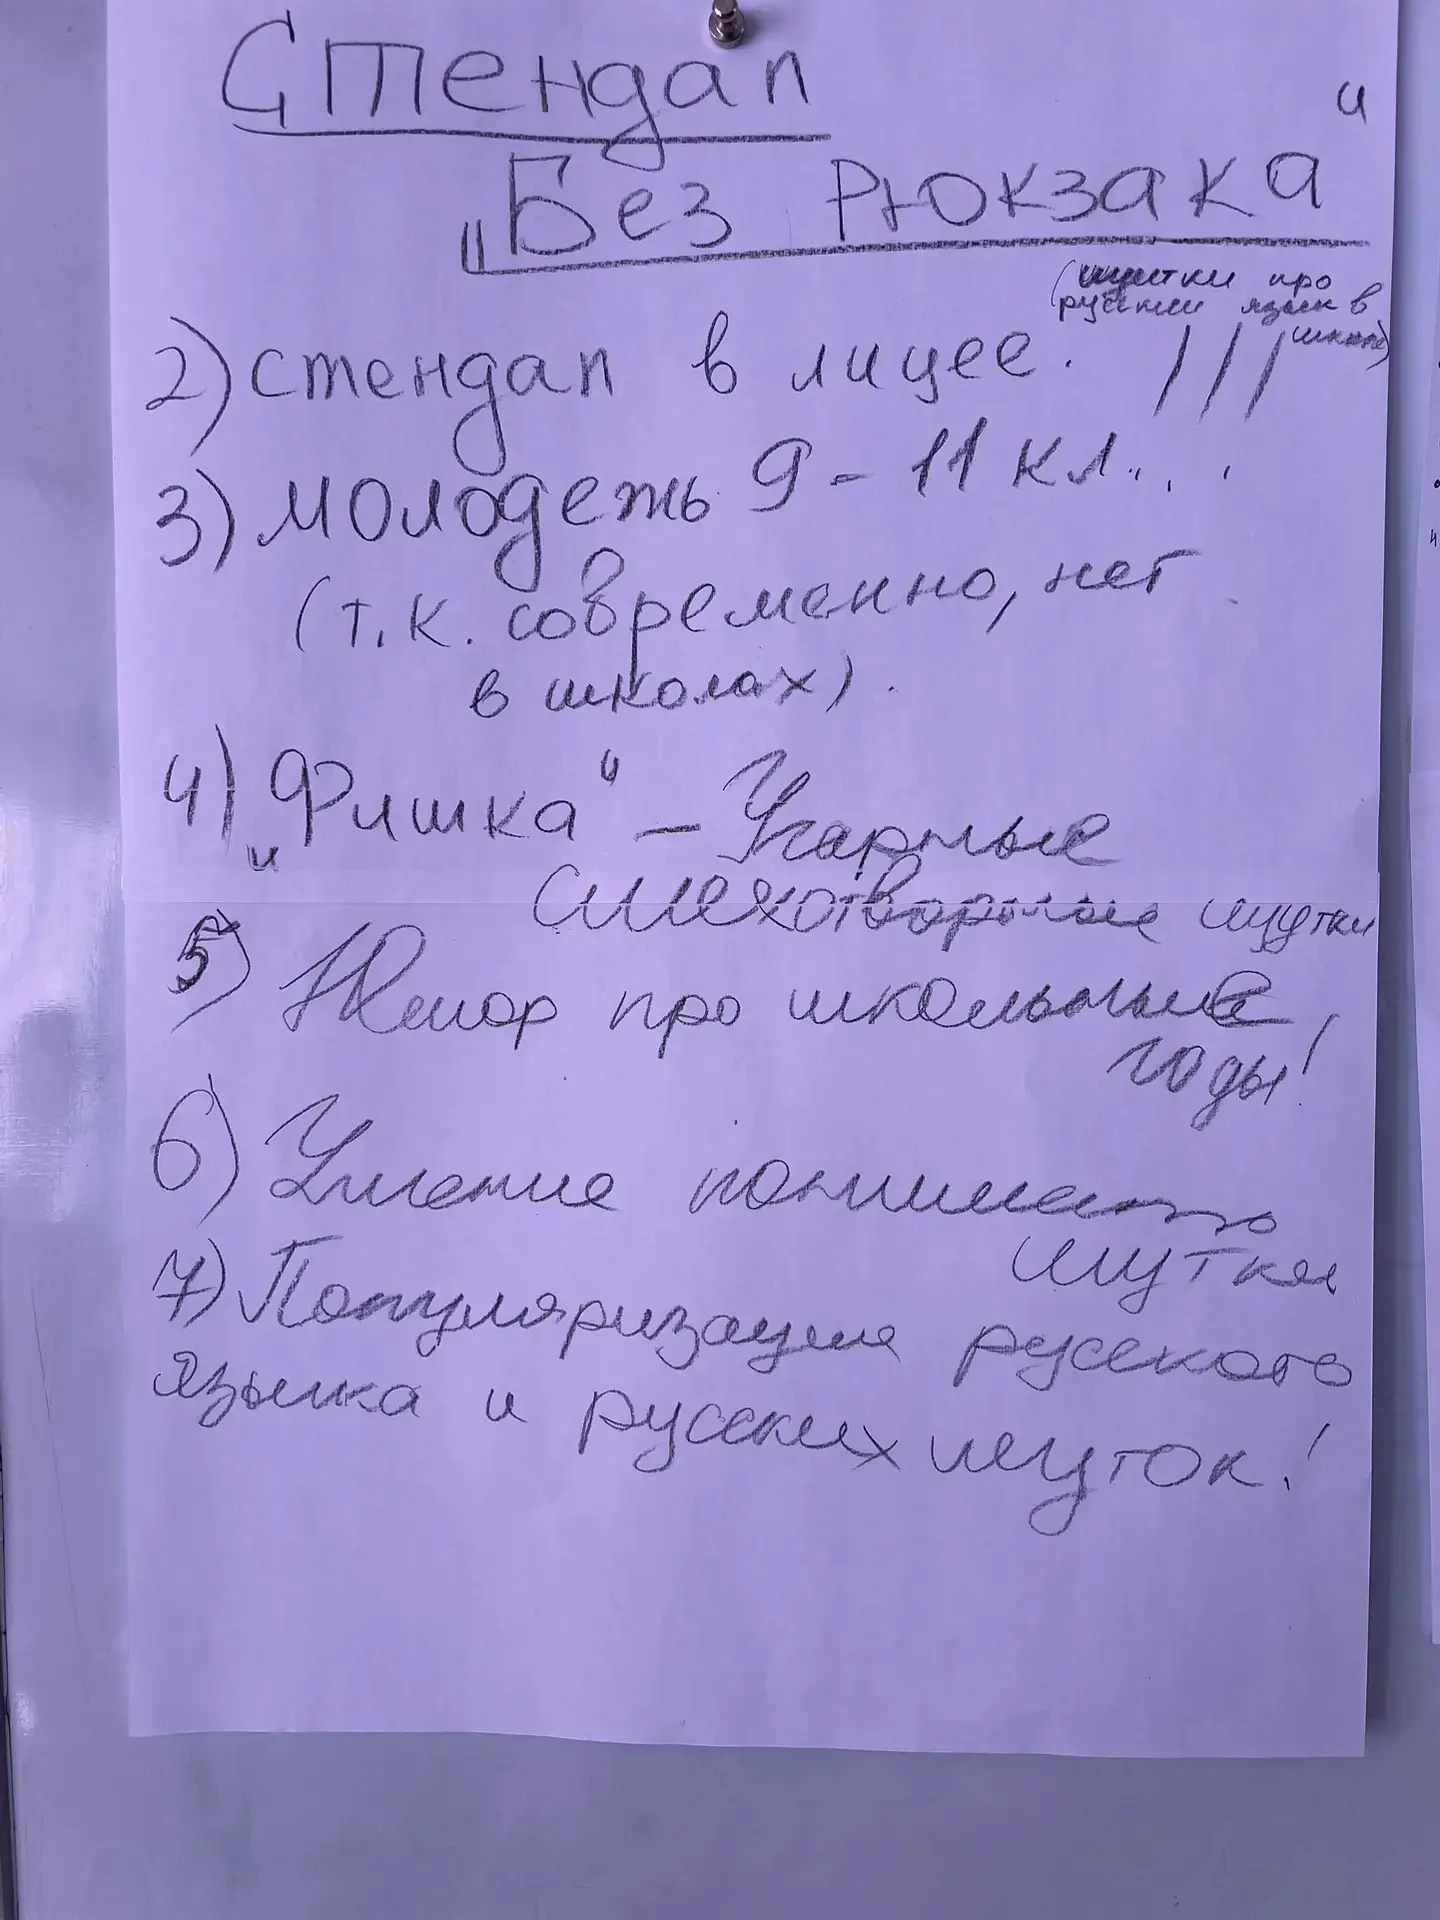 Стендап
„Без рюкзака“
(шутки про
русский язык в
школе)
2) стендап в лицее. ///
3) молодежь 9-11 кл....
(т.к. современно, нет
в школах).
4) „Фишка“ – Угарные
смехотворные шутки
5) Юмор про школьные
годы!
6) Умение понимать
шутки
7) Популяризация русского
языка и русских шуток!